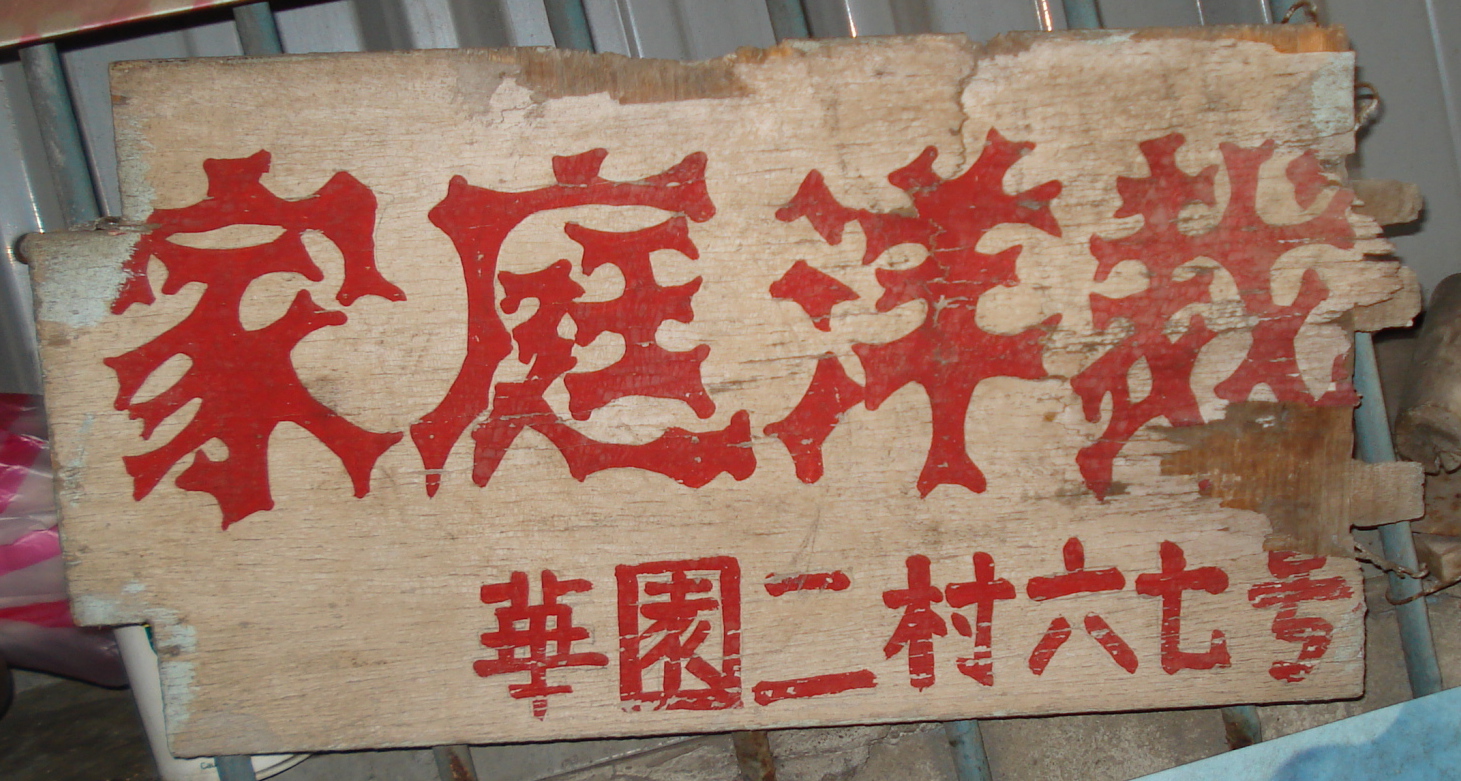 家庭洋裁
華園二村六七号